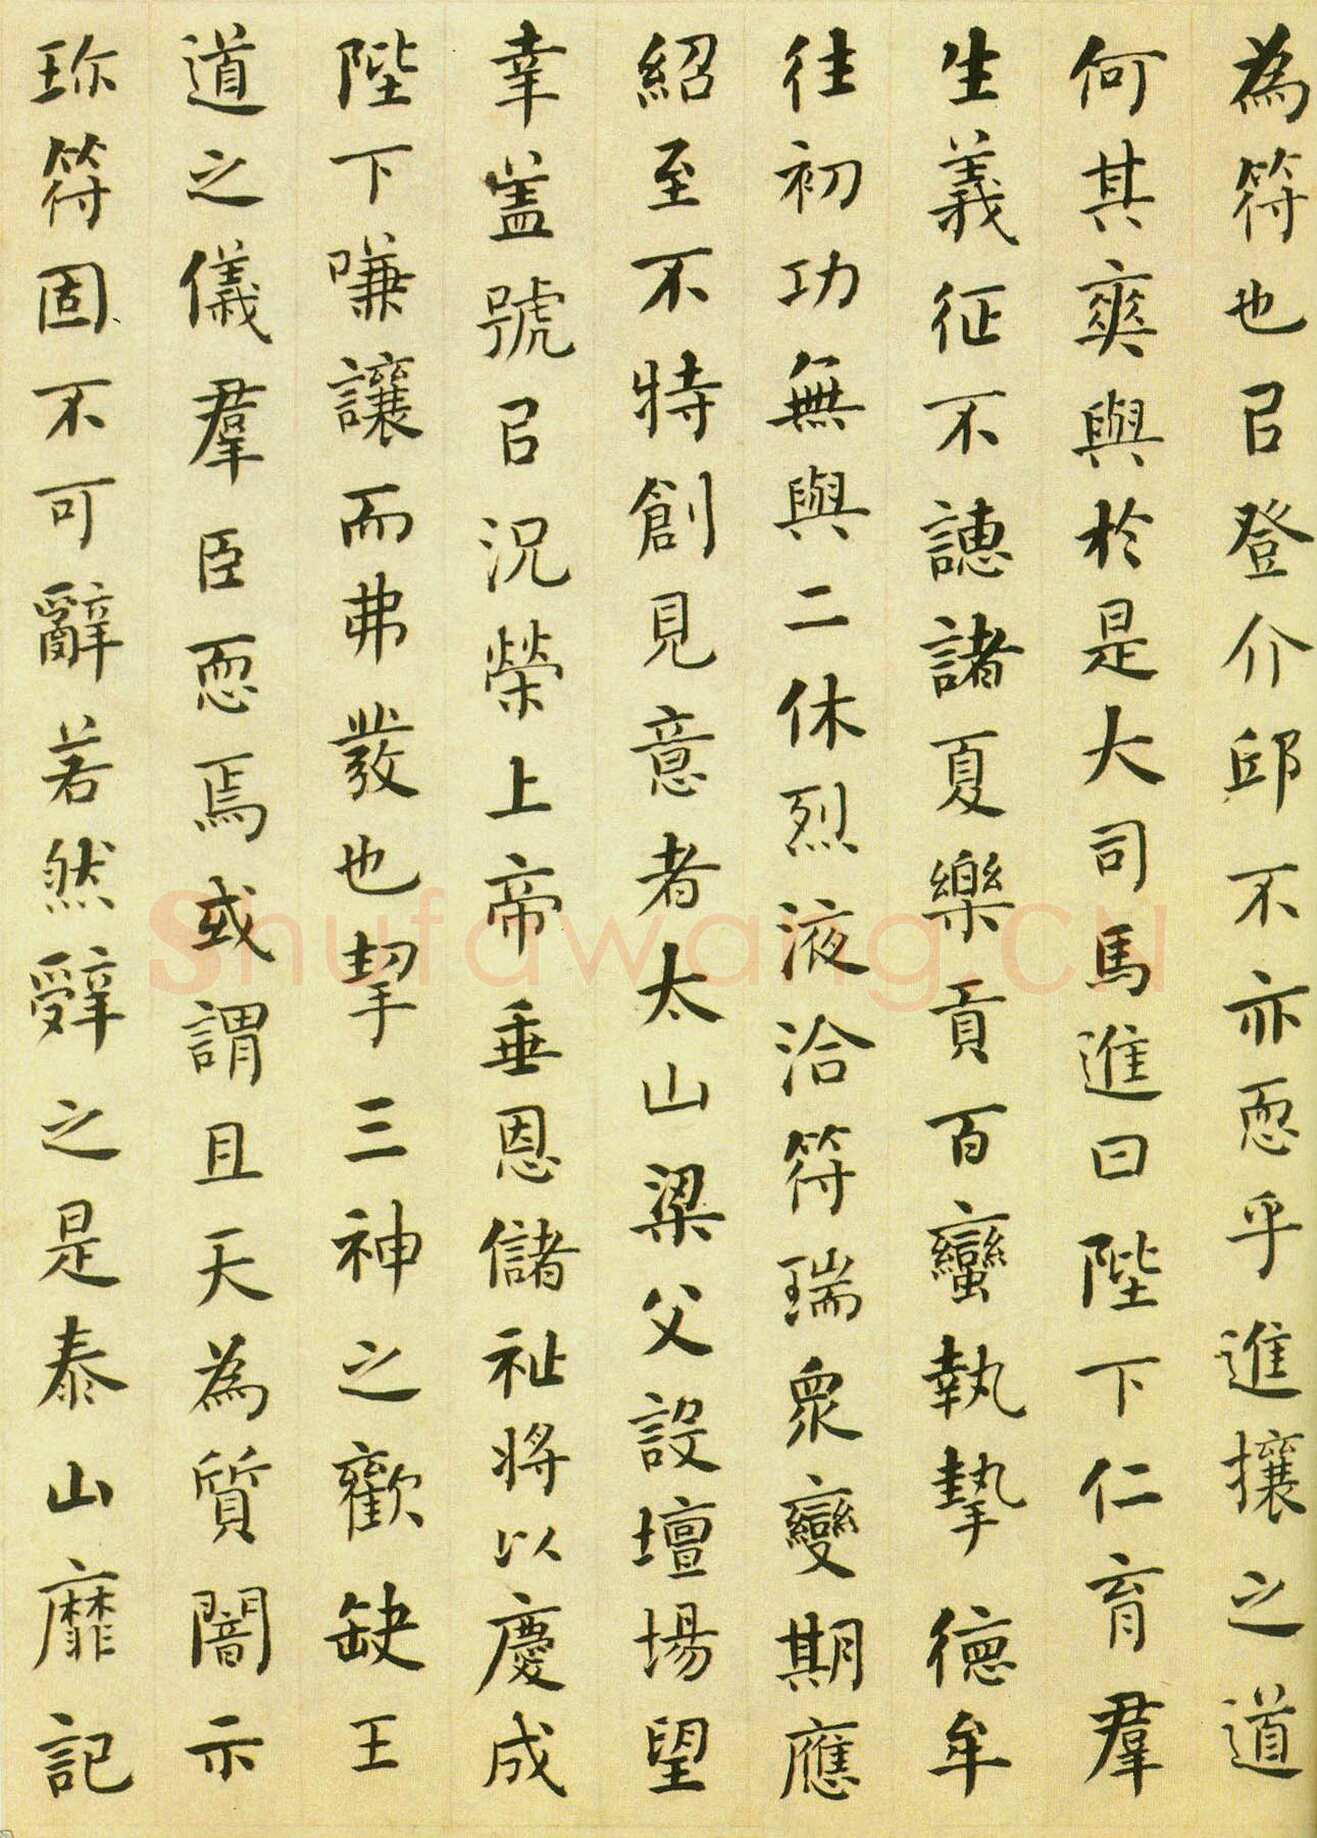 為符也㠯登介邱不亦恧乎進攘之道
何其爽與於是大司馬進曰陛下仁育羣
生義征不譓諸夏樂貢百蠻執摯德牟
往初功無與二休烈液洽符瑞眾變期應
紹至不特創見意者太山梁父設壇場望
幸盖號㠯況榮上帝垂恩儲祉將以慶成
陛下嗛讓而弗發也挈三神之歡缺王
道之儀羣臣恧焉或謂且天為質闇示
珎符固不可辭若然辤之是泰山靡記
Shufawang.CN